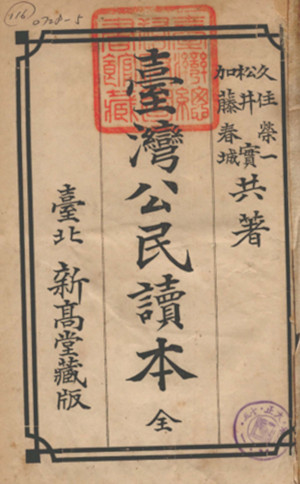 116
0728-5
臺灣總督府圖書館藏
久住榮一
松井實
加藤春城
共著
臺灣公民讀本 全
臺北 新高堂藏版